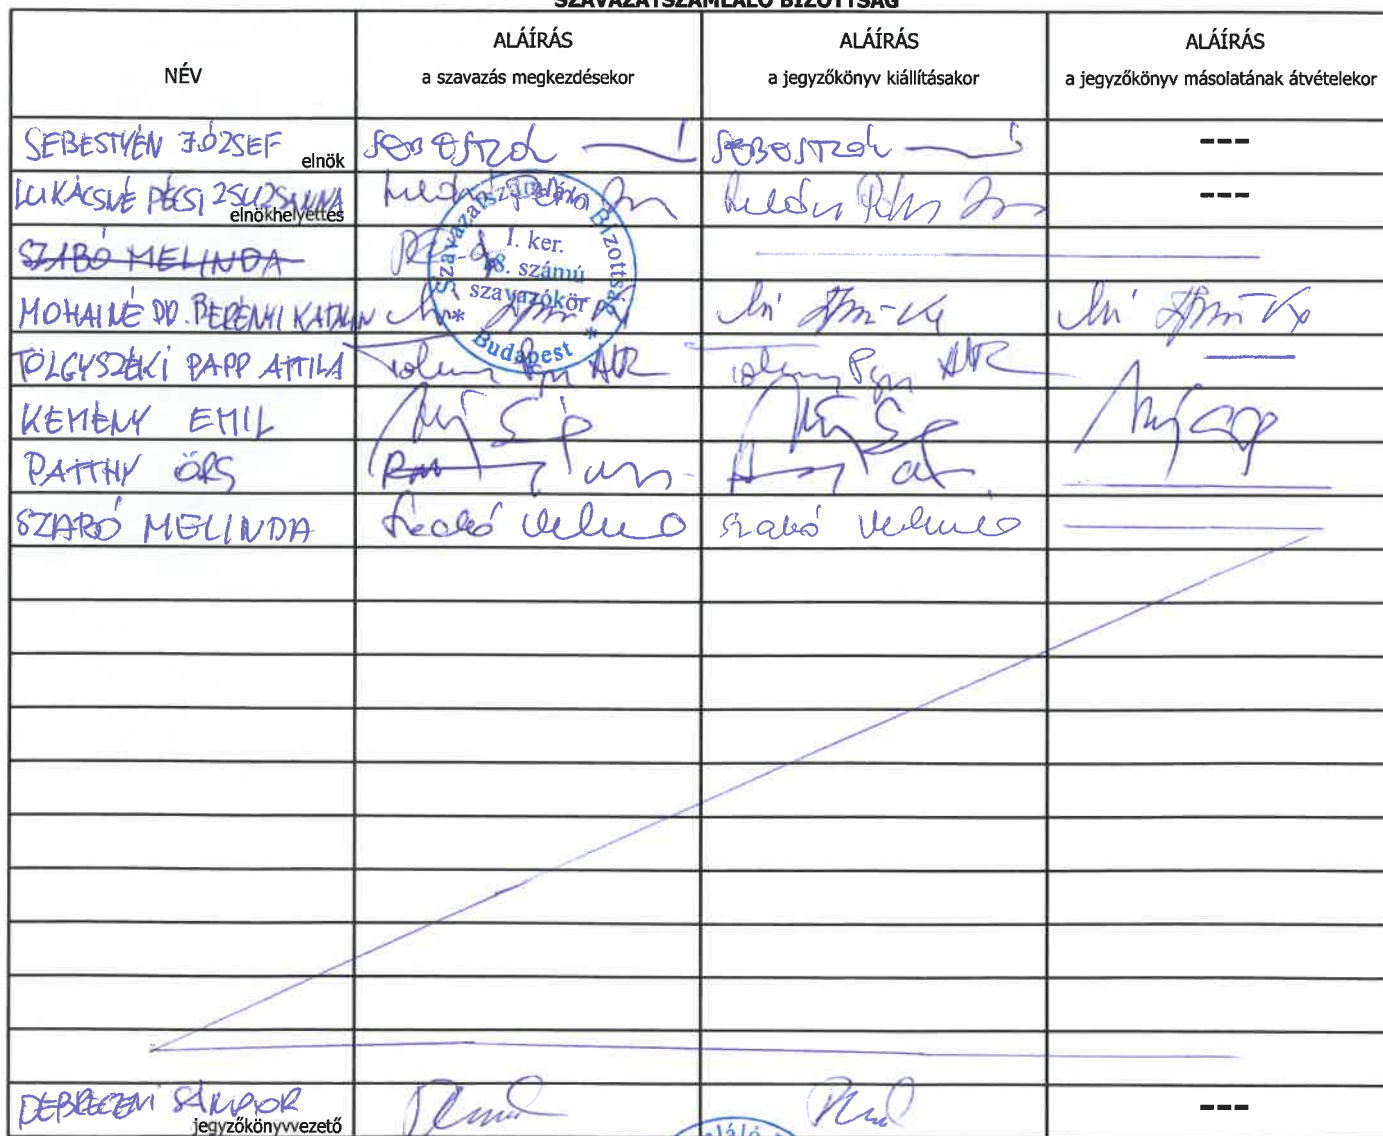 SZAVAZATSZÁMLÁLÓ BIZOTTSÁG
NÉV
ALÁÍRÁS
a szavazás megkezdésekor
ALÁÍRÁS
a jegyzőkönyv kiállításakor
ALÁÍRÁS
a jegyzőkönyv másolatának átvételekor
SEBESTYÉN JÓZSEF elnök ---
LUKÁCSNÉ PÉCSI ZSUZSANNA elnökhelyettes ---
SZABÓ MELINDA
MOHAINÉ DR. BERÉNYI KATALIN
TÖLGYSZÉKI PAPP ATTILA
KEMÉNY EMIL
PATTHY ÖRS
SZABÓ MELINDA Szabó Melinda Szabó Melinda
Szavazatszámláló Bizottság
I. ker.
18. számú
szavazókör
* Budapest *
DEBRECENI SÁNDOR jegyzőkönyvvezető ---